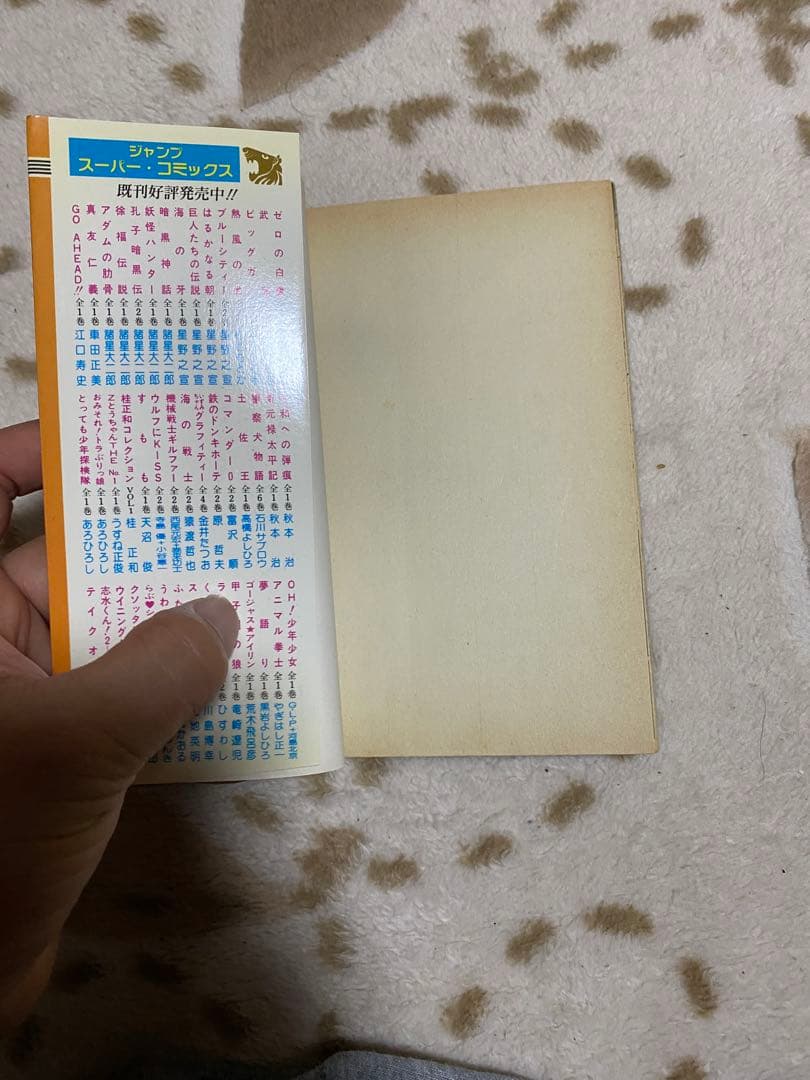 ジャンプ
スーパー・コミックス
既刊好評発売中!!
ゼロの白
武
ビッグガ
熱風の
ブルーシティー 全2巻 星野之宣
はるかなる朝 全1巻 星野之宣
巨人たちの伝説 全1巻 星野之宣
海の牙 全1巻 星野之宣
暗黒神話 全1巻 諸星大二郎
妖怪ハンター 全1巻 諸星大二郎
孔子暗黒伝 全2巻 諸星大二郎
徐福伝説 全1巻 諸星大二郎
アダムの肋骨 全1巻 諸星大二郎
真友仁義 全1巻 車田正美
GO AHEAD!! 全1巻 江口寿史
和への弾痕 全1巻 秋本治
元禄太平記 全1巻 秋本治
警察犬物語 全6巻 石川サブロウ
土佐王 全1巻 高橋よしひろ
コマンダー0 全2巻 富沢順
鉄のドンキホーテ 全2巻 原哲夫
グラフィティー 全4巻 金井たつお
海の戦士 全2巻 猿渡哲也
機械戦士ギルファー 全2巻 西尾元宏+
ウルフにKISS 全2巻 寺島優+小谷憲一
すもも 全1巻 天沼俊
桂正和コレクション VOL.1 桂正和
Zとうちゃん THE No.1 全1巻 うすね正俊
おみそれ!トラぶりっ娘 全1巻 あろひろし
とっても少年探検隊 全1巻 あろひろし
OH!少年少女 全1巻 G.L.P+河島北京
アニマル拳士 全1巻 やぎはし正一
夢語り 全1巻 黒岩よしひろ
ゴージャス★アイリン 全1巻 荒木飛呂彦
甲子 の狼 全1巻 竜崎遼児
ラ 2巻 ひすわし
く 川島博幸
ス 地英明
ふた
うわ
らぶ♥シ
クソッタ
ウイニング
志水くん!2
テイクオ